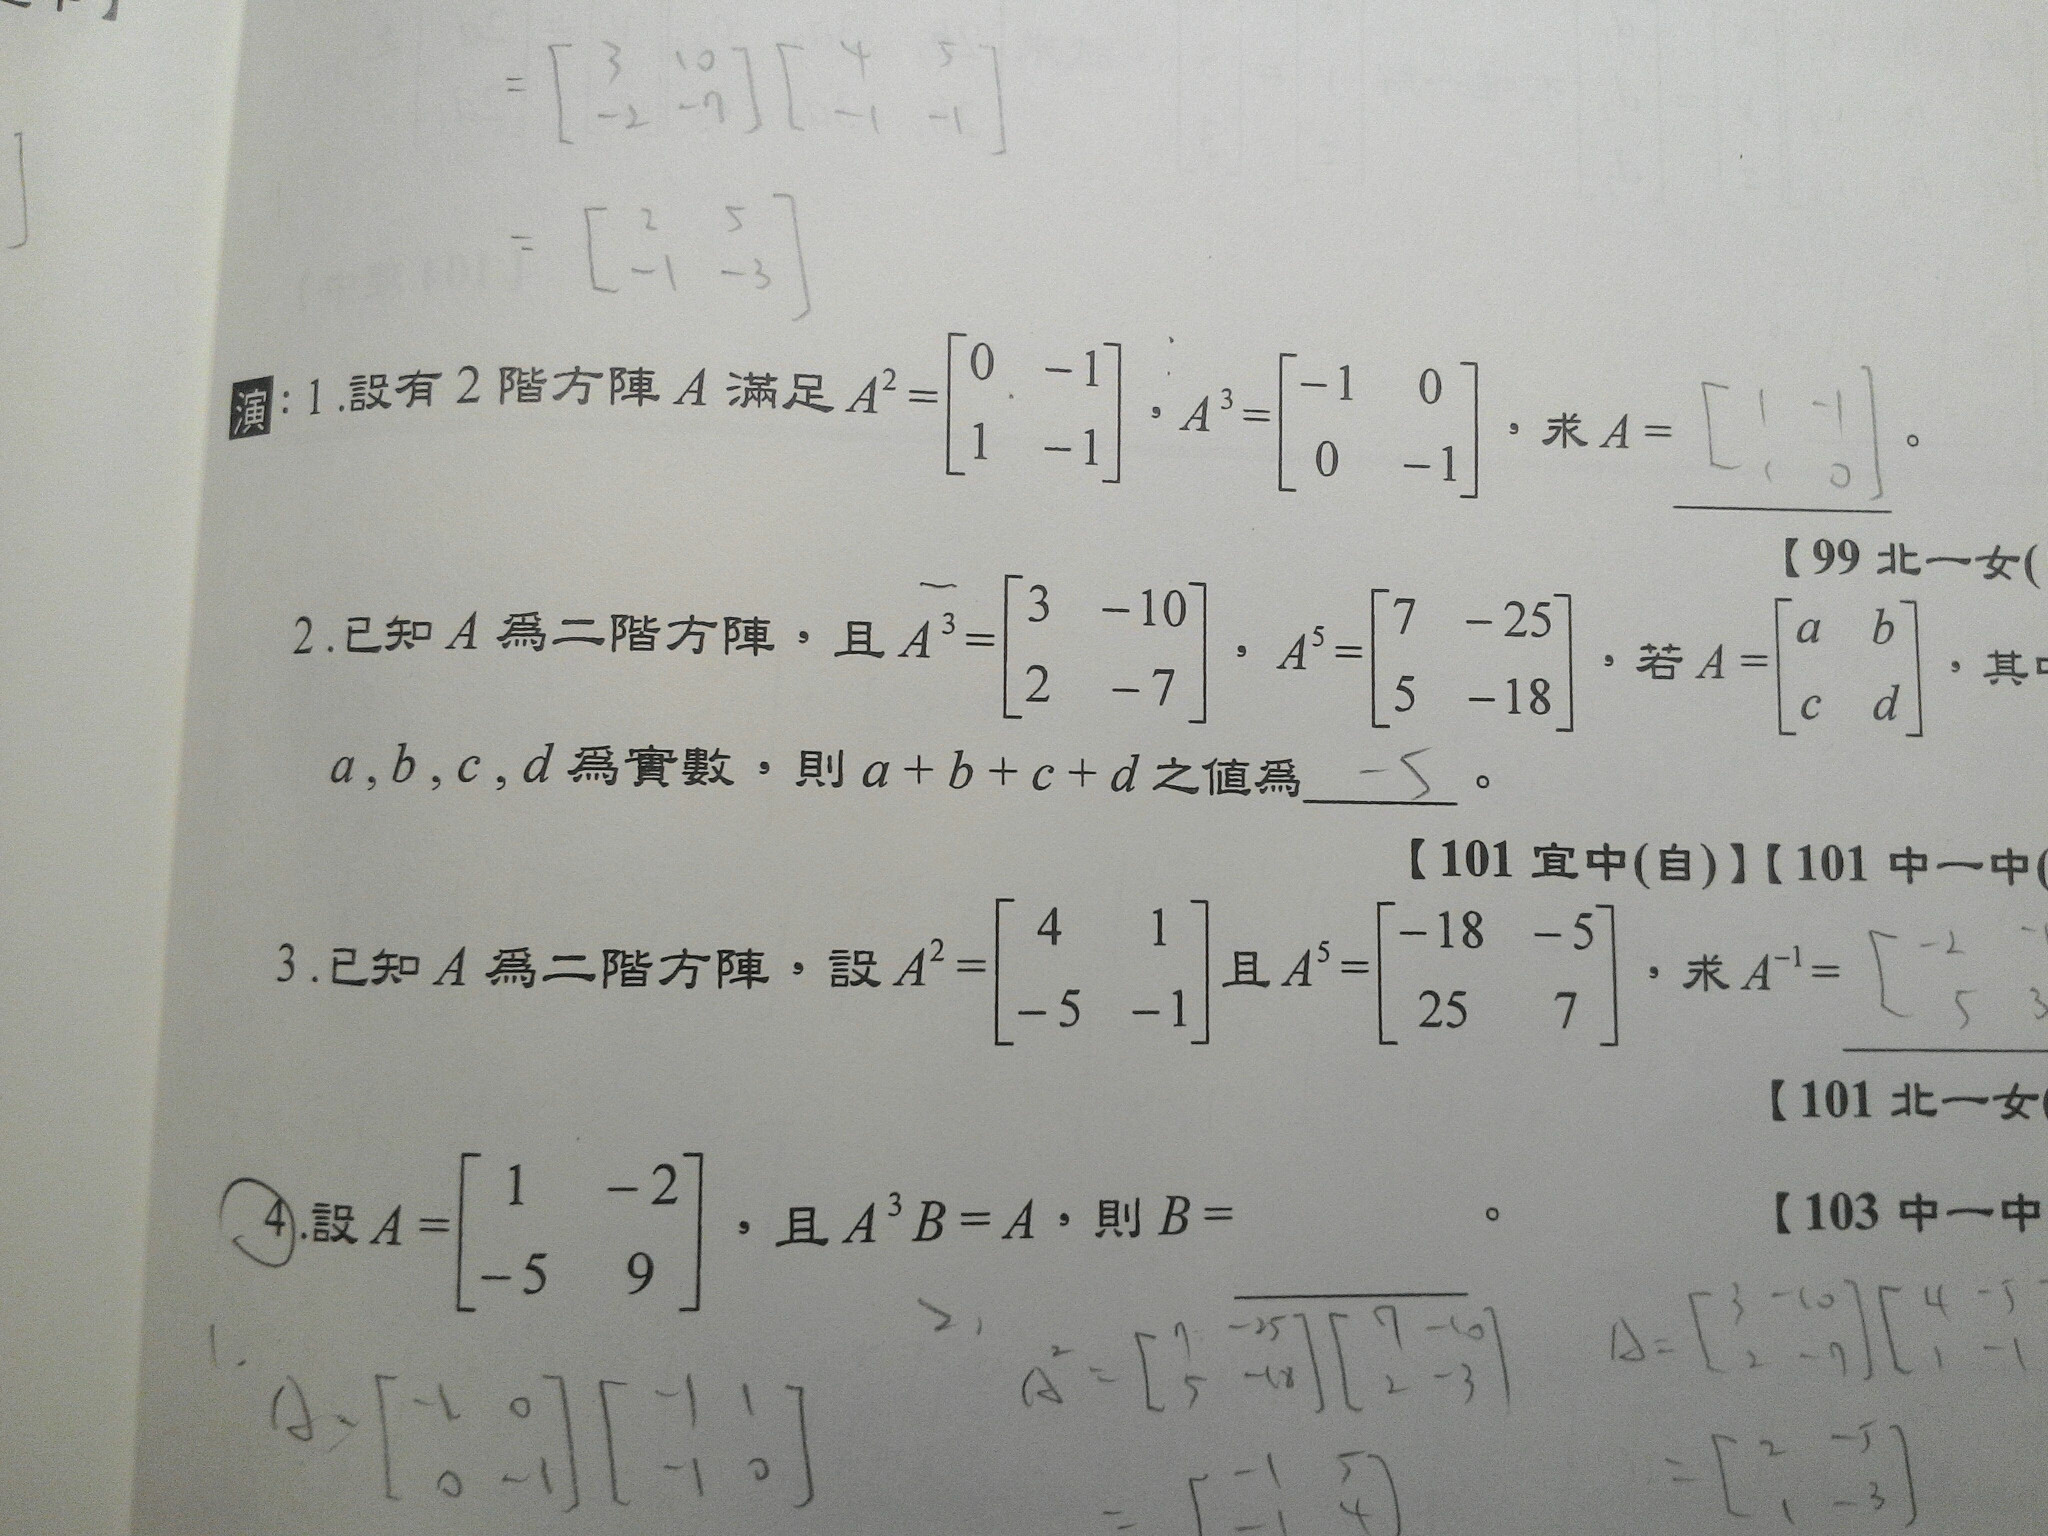 = [3 10; -2 -7] [4 5; -1 -1]
= [2 5; -1 -3]
演:1.設有2階方陣 A 滿足 A²=[0 -1; 1 -1],A³=[-1 0; 0 -1],求 A= [1 -1; 1 0]。
【99 北一女(
2.已知 A 爲二階方陣,且 A³=[3 -10; 2 -7],A⁵=[7 -25; 5 -18],若 A=[a b; c d],其中
a,b,c,d 爲實數,則 a+b+c+d 之值爲 -5。
【101 宜中(自)】【101 中一中(
3.已知 A 爲二階方陣,設 A²=[4 1; -5 -1] 且 A⁵=[-18 -5; 25 7],求 A⁻¹= [-2 -1; 5 3
【101 北一女(
4.設 A=[1 -2; -5 9],且 A³B=A,則 B= 。
【103 中一中
1. A= [-1 0; 0 -1] [-1 1; -1 0]
2. A² = [7 -25; 5 -18] [7 -10; 2 -3]
= [-1 5; -1 4]
A= [3 -10; 2 -7] [4 -5; 1 -1
= [2 -5; 1 -3]